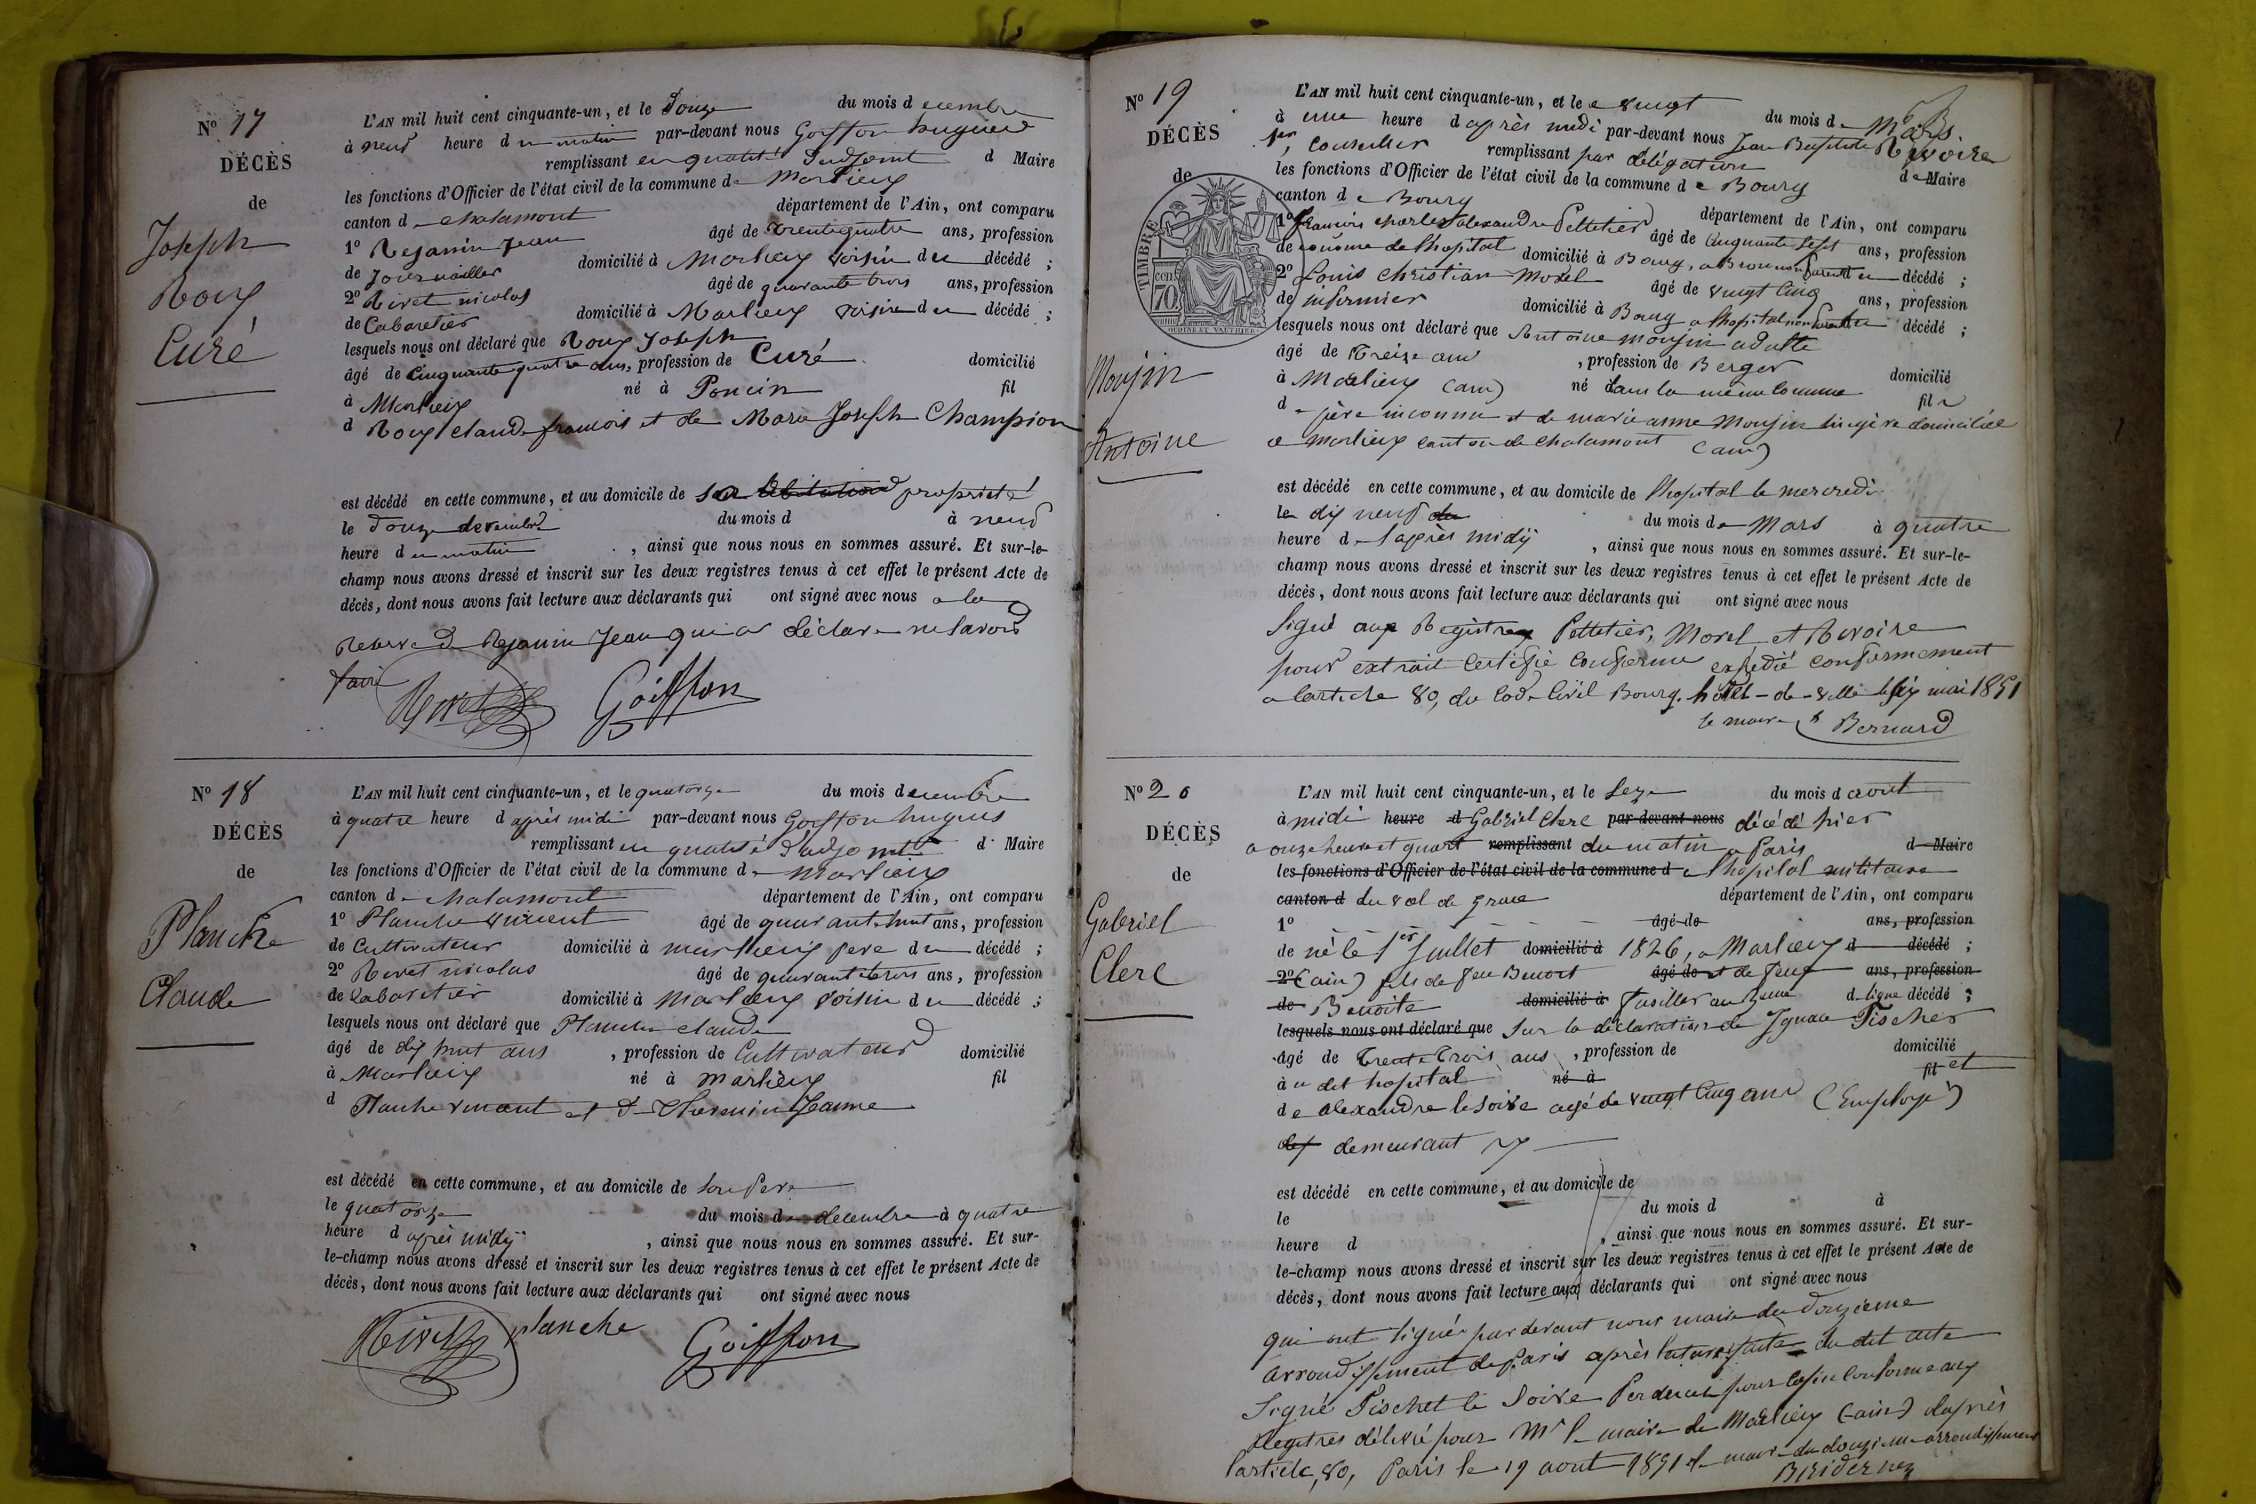 Nº 17
DÉCÈS
de
Joseph
Roux
Curé
L'AN mil huit cent cinquante-un, et le Douze du mois d ecembre
à neuf heure d u matin par-devant nous Goiffon hugues
remplissant en qualité d'adjoint d Maire
les fonctions d'Officier de l'état civil de la commune de Marlieux
canton de chalamont département de l'Ain, ont comparu
1º Rejanin Jean âgé de trente quatre ans, profession
de Journaillier domicilié à Marlieux voisin du décédé ;
2º Rivet nicolas âgé de quarante trois ans, profession
de Cabaretier domicilié à Marlieux voisin du décédé ;
lesquels nous ont déclaré que Roux Joseph
âgé de Cinquante quatre ans, profession de Curé domicilié
à Marlieux né à Poncin fil
d Roux claude francois et de Marie Joseph Champion
est décédé en cette commune, et au domicile de sa habitation propriété
le Douze decembre du mois d à neuf
heure du matin , ainsi que nous nous en sommes assuré. Et sur-le-
champ nous avons dressé et inscrit sur les deux registres tenus à cet effet le présent Acte de
décès, dont nous avons fait lecture aux déclarants qui ont signé avec nous a la
Reserve de Rejanin Jean qui a déclare ne savoir
faire
Rivet Goiffon
Nº 18
DÉCÈS
de
Planche
Claude
L'AN mil huit cent cinquante-un, et le quatorze du mois decembre
à quatre heure d après midi par-devant nous Goiffon hugues
remplissant en qualité d'adjoint d Maire
les fonctions d'Officier de l'état civil de la commune de Marlieux
canton de chalamont département de l'Ain, ont comparu
1º Planche vincent âgé de quarant huit ans, profession
de Cultivateur domicilié à marlieux pere du décédé ;
2º Rivet nicolas âgé de quarant trois ans, profession
de Cabaretier domicilié à Marlieux voisin du décédé ;
lesquels nous ont déclaré que Planche claude
âgé de dix huit ans , profession de Cultivateur domicilié
à Marlieux né à marlieux fil
d Planche vincent et de Jeanne
est décédé en cette commune, et au domicile de son Pere
le quatorze du mois de decembre à quatre
heure d après midy , ainsi que nous nous en sommes assuré. Et sur-
le-champ nous avons dressé et inscrit sur les deux registres tenus à cet effet le présent Acte de
décès, dont nous avons fait lecture aux déclarants qui ont signé avec nous
Rivet planche Goiffon
Nº 19
DÉCÈS
de
TIMBRE
CEN. 70
Moujin
Antoine
L'AN mil huit cent cinquante-un, et le vingt du mois de Mars
à une heure d après midi par-devant nous Jean Baptiste Revoire
1er, Conseiller remplissant par délégation de Maire
les fonctions d'Officier de l'état civil de la commune de Bourg
canton de Bourg département de l'Ain, ont comparu
1º francois charles alexandre Pelletier âgé de Cinquante sept ans, profession
de econome de l'hopital domicilié à Bourg, non parent du décédé ;
2º Louis Christian Morel âgé de vingt Cinq ans, profession
de infirmier domicilié à Bourg a lhopital non parent du décédé ;
lesquels nous ont déclaré que Antoine moujin adulte
âgé de Treize ans , profession de Berger domicilié
à Marlieux (ain) né dans la même Commune fil
de père inconnu et de marie anne Moujin lingère domiciliée
a marlieux canton de chalamont (ain)
est décédé en cette commune, et au domicile de lhopital le mercredi
le dix neuf du du mois de Mars à quatre
heure de l'après midy , ainsi que nous nous en sommes assuré. Et sur-le-
champ nous avons dressé et inscrit sur les deux registres tenus à cet effet le présent Acte de
décès, dont nous avons fait lecture aux déclarants qui ont signé avec nous
Signé aux Registres Pelletier, Morel et Revoire
pour extrait Certifié Conforme expédié conformement
a larticle 80, du Code Civil Bourg. hôtel-de-ville le six mai 1851
le maire Bernard
Nº 20
DÉCÈS
de
Gabriel
Clerc
L'AN mil huit cent cinquante-un, et le Seze du mois d aout
à midi heure d Gabriel Clerc par-devant nous décédé hier
a onze heure et quart remplissant du matin a Paris d Maire
les fonctions d'Officier de l'état civil de la commune d a lhopital militaire
canton d du val de grace département de l'Ain, ont comparu
1º âgé de ans, profession
de né le 1er Juillet domicilié à 1826, a Marlieux d décédé ;
2º (ain) fils de feu Benoit âgé de et de feue ans, profession
de Benoite domicilié à fusillier au de ligne décédé ;
lesquels nous ont déclaré que Sur la déclaration de Ignace Fischer
âgé de Trente Trois ans , profession de domicilié
à u dit hopital né à fil et
de alexandre lesoire agé de vingt Cinq ans (Employé)
demeurant
est décédé en cette commune, et au domicile de
le du mois d à
heure d , ainsi que nous nous en sommes assuré. Et sur-
le-champ nous avons dressé et inscrit sur les deux registres tenus à cet effet le présent Acte de
décès, dont nous avons fait lecture aux déclarants qui ont signé avec nous
qui ont signé par devant nous maire du douzieme
arrondissement de Paris après lecture faite du dit acte
Signé Fischet le Soire pour Copie Conforme aux
Registres délivré pour Mr le maire de Marlieux (ain) dapres
l'article, 80, Paris le 19 aout 1851 le maire du douzieme arrondissement